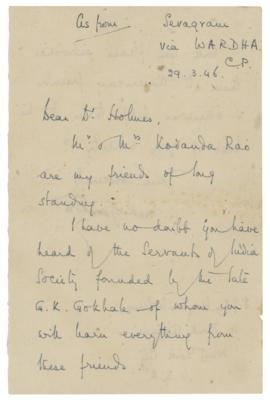 As from Sevagram
via WARDHA.
C.P.
29.3.46.
Dear Dr Holmes,
Mr & Mrs Kodanda Rao
are my friends of long
standing.
I have no doubt you have
heard of the Servants of India
Society founded by the late
G. K. Gokhale - of whom you
will learn everything from
these friends